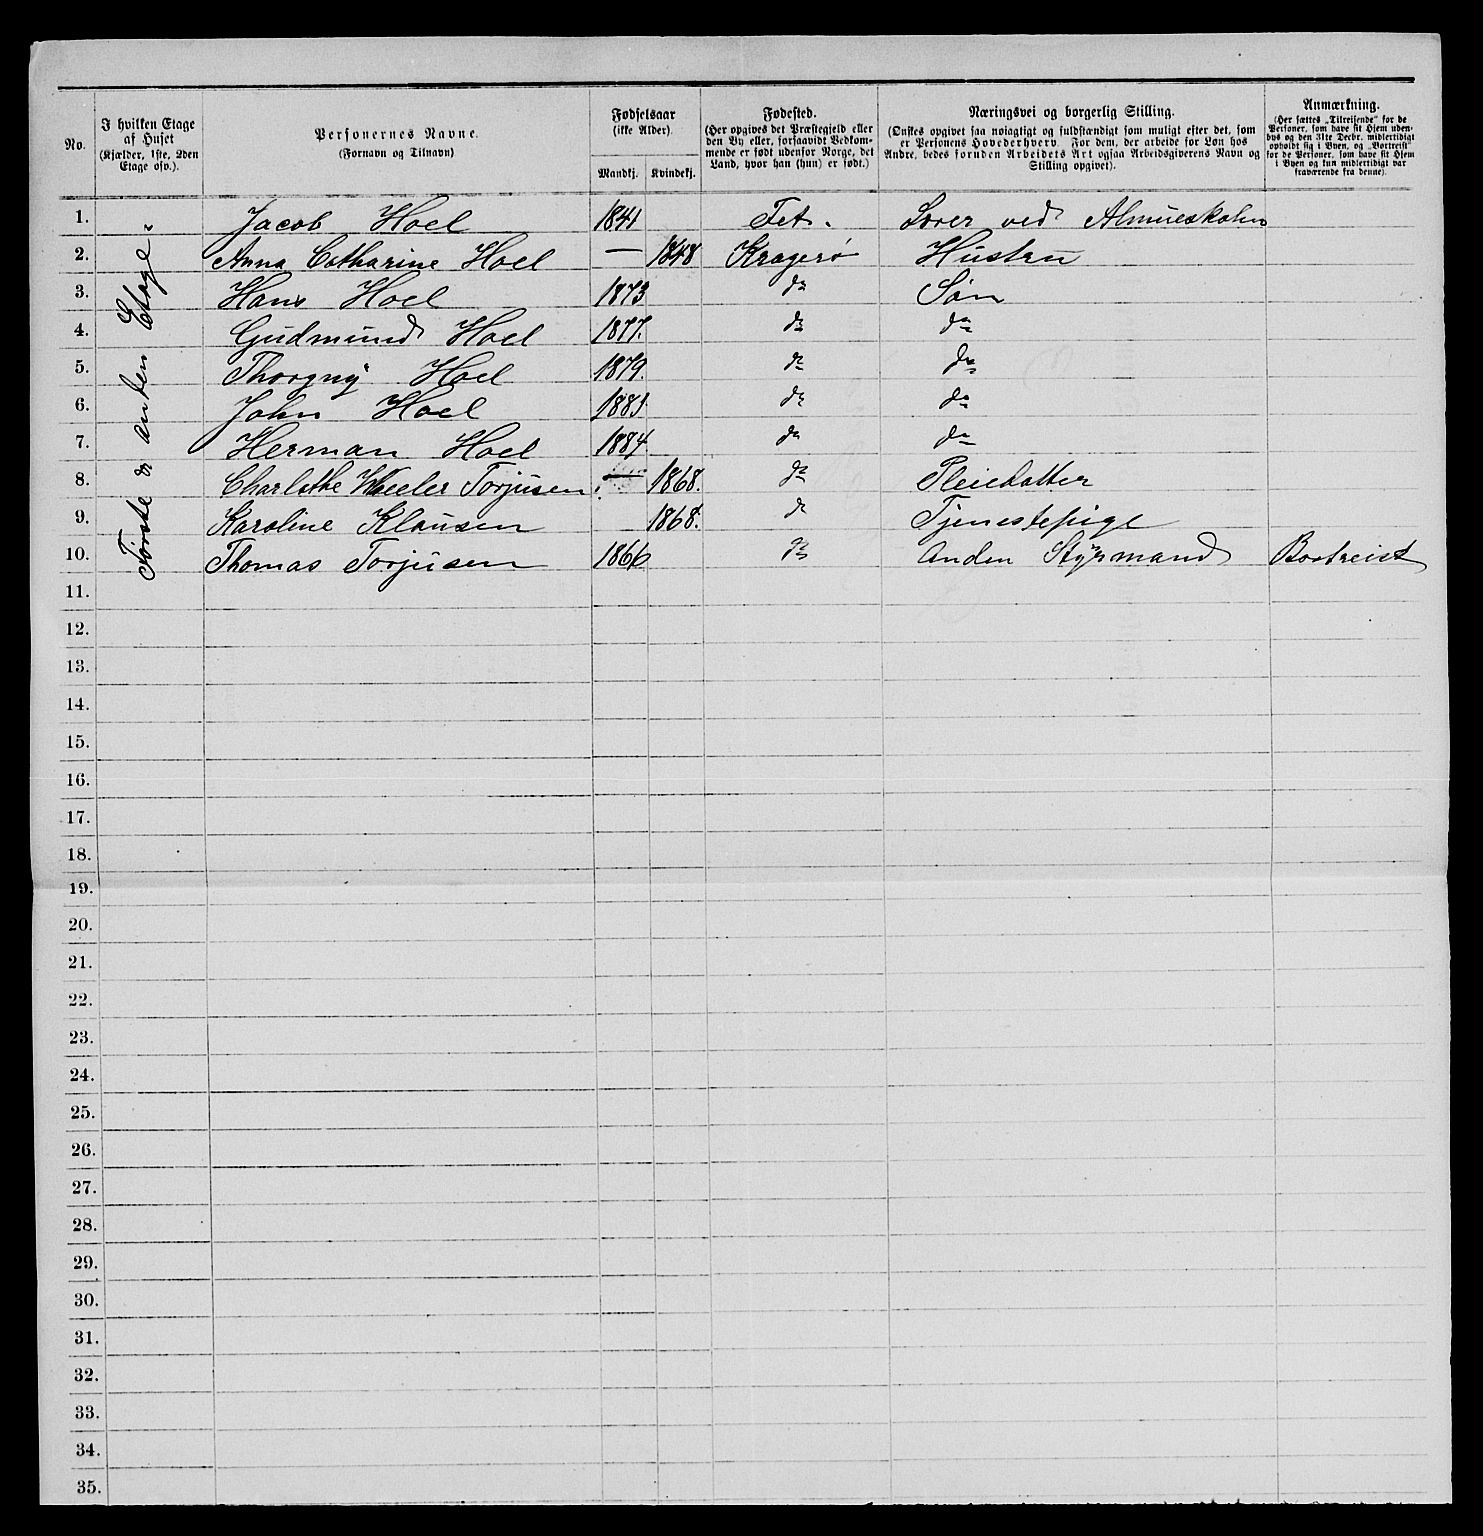 No.
I hvilken Etage af Huset (Kjælder, 1ste, 2den Etage osv.).
Personernes Navne.
(Fornavn og Tilnavn)
Fødselsaar
(ikke Alder).
Mandkj. Kvindekj.
Fødested.
(Her opgives det Præstegjeld eller den By eller, forsaavidt Vedkommende er født udenfor Norge, det Land, hvor han (hun) er født.)
Næringsvei og borgerlig Stilling.
(Ønskes opgivet saa nøiagtigt og fuldstændigt som muligt efter det, som er Personens Hovederhverv. For dem, der arbeide for Løn hos Andre, bedes foruden Arbeidets Art ogsaa Arbeidsgiverens Navn og Stilling opgivet).
Anmærkning.
(Her sættes „Tilreisende" for de Personer, som have sit Hjem udenbys og den 31te Decbr. midlertidigt opholdt sig i Byen, og „Bortreist" for de Personer, som have sit Hjem i Byen og kun midlertidigt var fraværende fra denne).
Første & anden Etage.
1. Jacob Hoel 1841 Fet. Lærer ved Almueskolen
2. Anna Catharine Hoel — 1848 Kragerø Hustru
3. Hans Hoel 1873 do Søn
4. Gudmund Hoel 1877. do do
5. Thorgny Hoel 1879. do do
6. John Hoel 1883 do do
7. Herman Hoel 1884. do do
8. Charlothe Weeler Torjusen. — 1868. do Pleiedatter
9. Karoline Klausen 1868. do Tjenestepige
10. Thomas Torjusen 1866 do Anden Styrmand Bortreist
11.
12.
13.
14.
15.
16.
17.
18.
19.
20.
21.
22.
23.
24.
25.
26.
27.
28.
29.
30.
31.
32.
33.
34.
35.